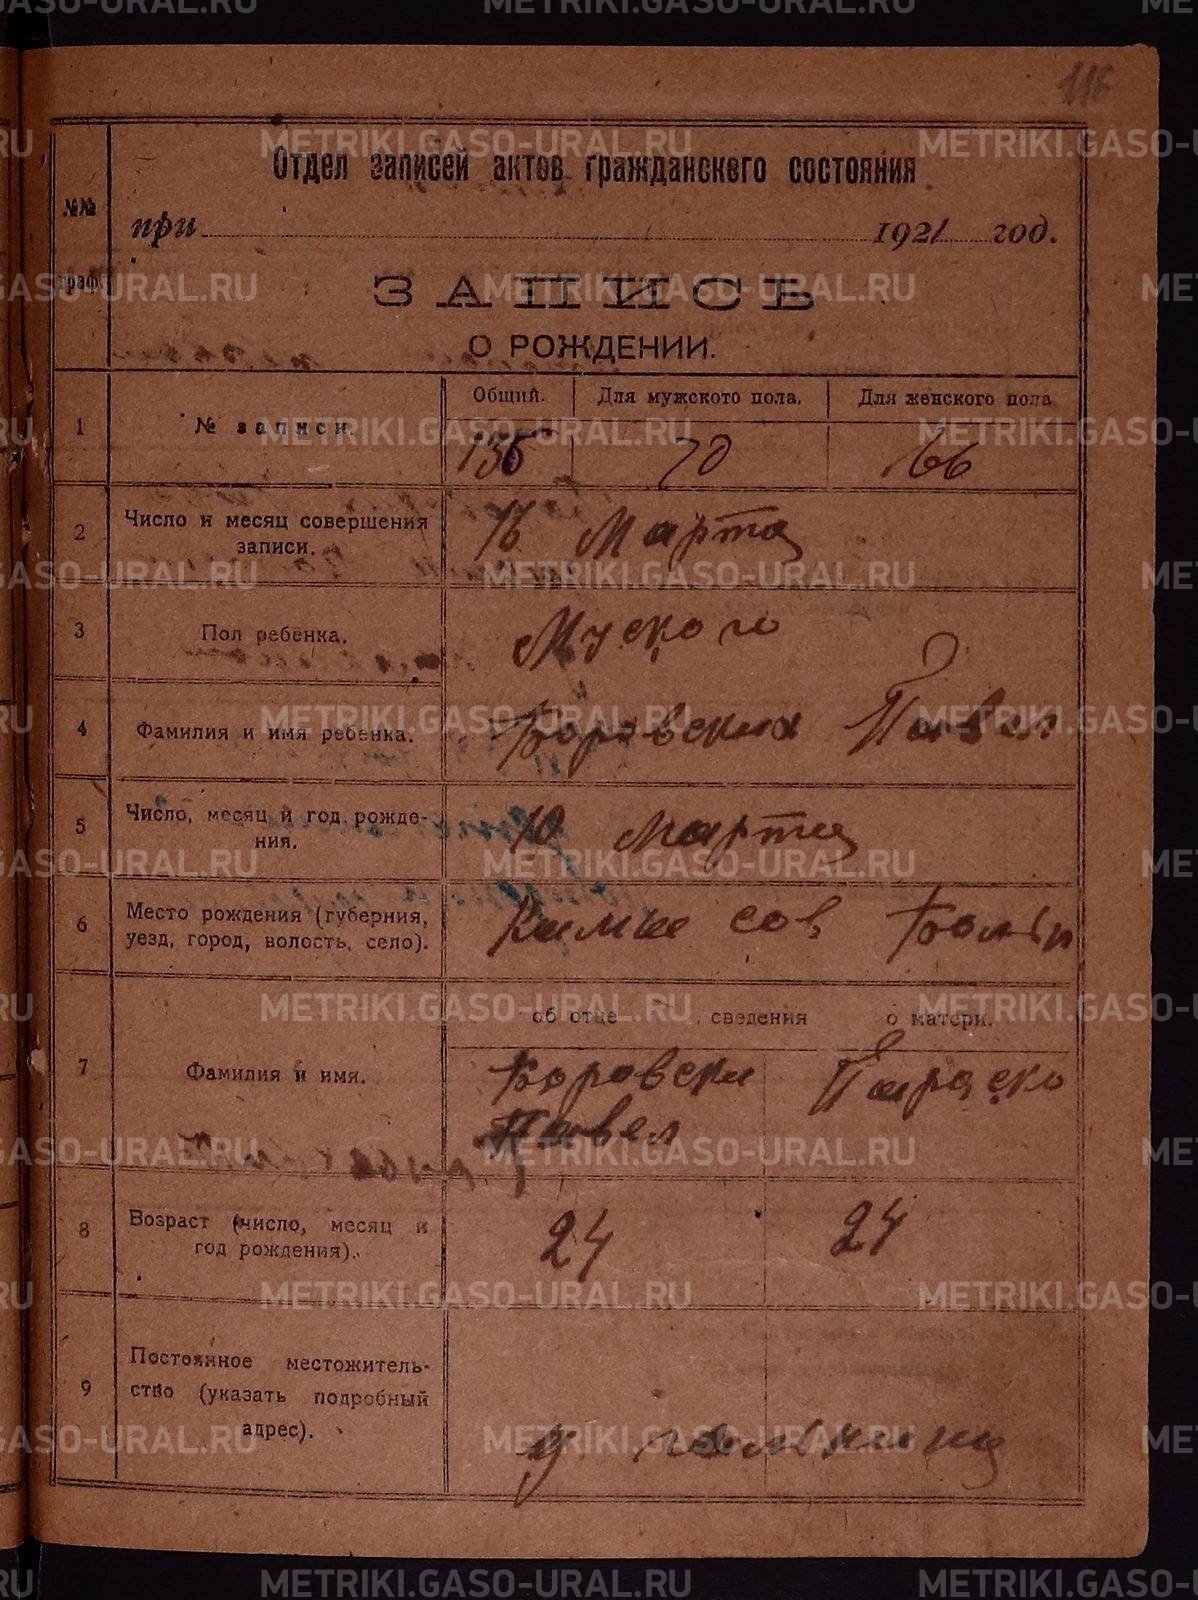 116
Отдел записей актов гражданского состояния
№№ граф.
при 1921 год.
ЗАПИСЬ
О РОЖДЕНИИ.
1 № записи. Общий. Для мужского пола. Для женского пола
135 70 66
2 Число и месяц совершения записи. 16 Марта
3 Пол ребенка. Муского
4 Фамилия и имя ребенка. Боровских Павел
5 Число, месяц и год рождения. 10 Марта
6 Место рождения (губерния, уезд, город, волость, село). сов
об отце сведения о матери.
7 Фамилия и имя. Боровски Параско
Павел
8 Возраст (число, месяц и год рождения). 24 24
9 Постоянное местожительство (указать подробный адрес).
METRIKI.GASO-URAL.RU